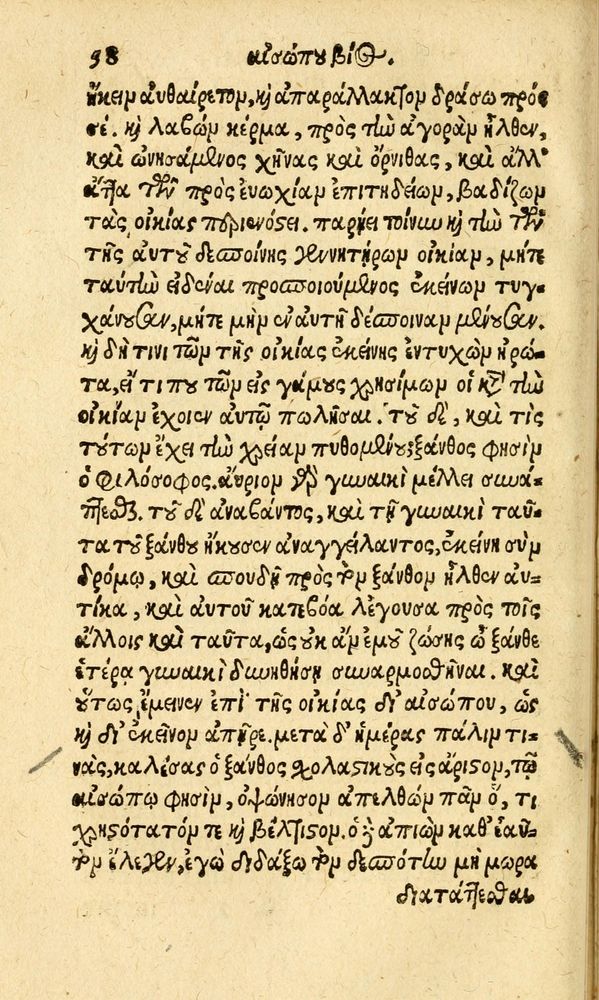 58 αἰσώπου βίος.
ἥκειν αὐθαίρετον, καὶ ἀπαράλλακτον δράσω πρός
σέ. καὶ λαβὼν κέρμα, πρὸς τὴν ἀγορὰν ἦλθεν,
καὶ ὠνησάμενος χῆνας καὶ ὄρνιθας, καὶ ἄλλ'
ἄττα τῶν πρὸς ἐνωχίαν ἐπιτηδείων, βαδίζων
τὰς οἰκίας περιενόστει. παρῄει τοίνυν καὶ τὴν τῶν
τῆς αὐτοῦ δεσποίνης γεννητήρων οἰκίαν, μήτε
ταύτην εἰδέναι προσποιούμενος ἐκείνων τυγ-
χάνουσαν, μήτε μὴν ἐν αὐτῇ δέσποιναν μένουσαν.
καὶ δή τινι τῶν τῆς οἰκίας ἐκείνης ἐντυχὼν ἠρώ-
τα, εἴ τι που τῶν εἰς γάμους χρησίμων οἱ κατὰ τὴν
οἰκίαν ἔχοιεν αὐτῷ πωλῆσαι. τοῦ δὲ, καὶ τίς
τούτων ἔχει τὴν χρείαν πυθομένου; ξάνθος φησὶν
ὁ φιλόσοφος. αὔριον γὰρ γυναικὶ μέλλει συνά-
πτεσθαι. τοῦ δ' ἀναβάντος, καὶ τῇ γυναικὶ ταῦ-
τα τοῦ ξάνθου ἤκουσεν ἀναγγείλαντος, ἐκείνη σὺν
δρόμῳ, καὶ σπουδῇ πρὸς τὸν ξάνθον ἦλθεν αὐ-
τίκα, καὶ αὐτοῦ κατεβόα λέγουσα πρὸς τοῖς
ἄλλοις καὶ ταῦτα, ὡς οὐκ ἂν ἐμοῦ ζώσης ὦ ξάνθε
ἑτέρᾳ γυναικὶ δυνηθείση συναρμοσθῆναι. καὶ
οὕτως ἔμεινεν ἐπὶ τῆς οἰκίας δι' αἰσώπου, ὡς
καὶ δι' ἐκεῖνον ἀπῇρε. μετὰ δ' ἡμέρας πάλιν τι-
νὰς, καλέσας ὁ ξάνθος σχολαστικοὺς εἰς ἄριστον, τῷ
αἰσώπῳ φησὶν, ὀψώνησον ἀπελθὼν πᾶν ὅ, τι
χρηστότατόν τε καὶ βέλτιστον. ὁ δὲ ἀπιὼν καθ' ἑαυ-
τὸν ἔλεγεν, ἐγὼ διδάξω τὸν δεσπότην μὴ μωρὰ
διατάττεσθαι